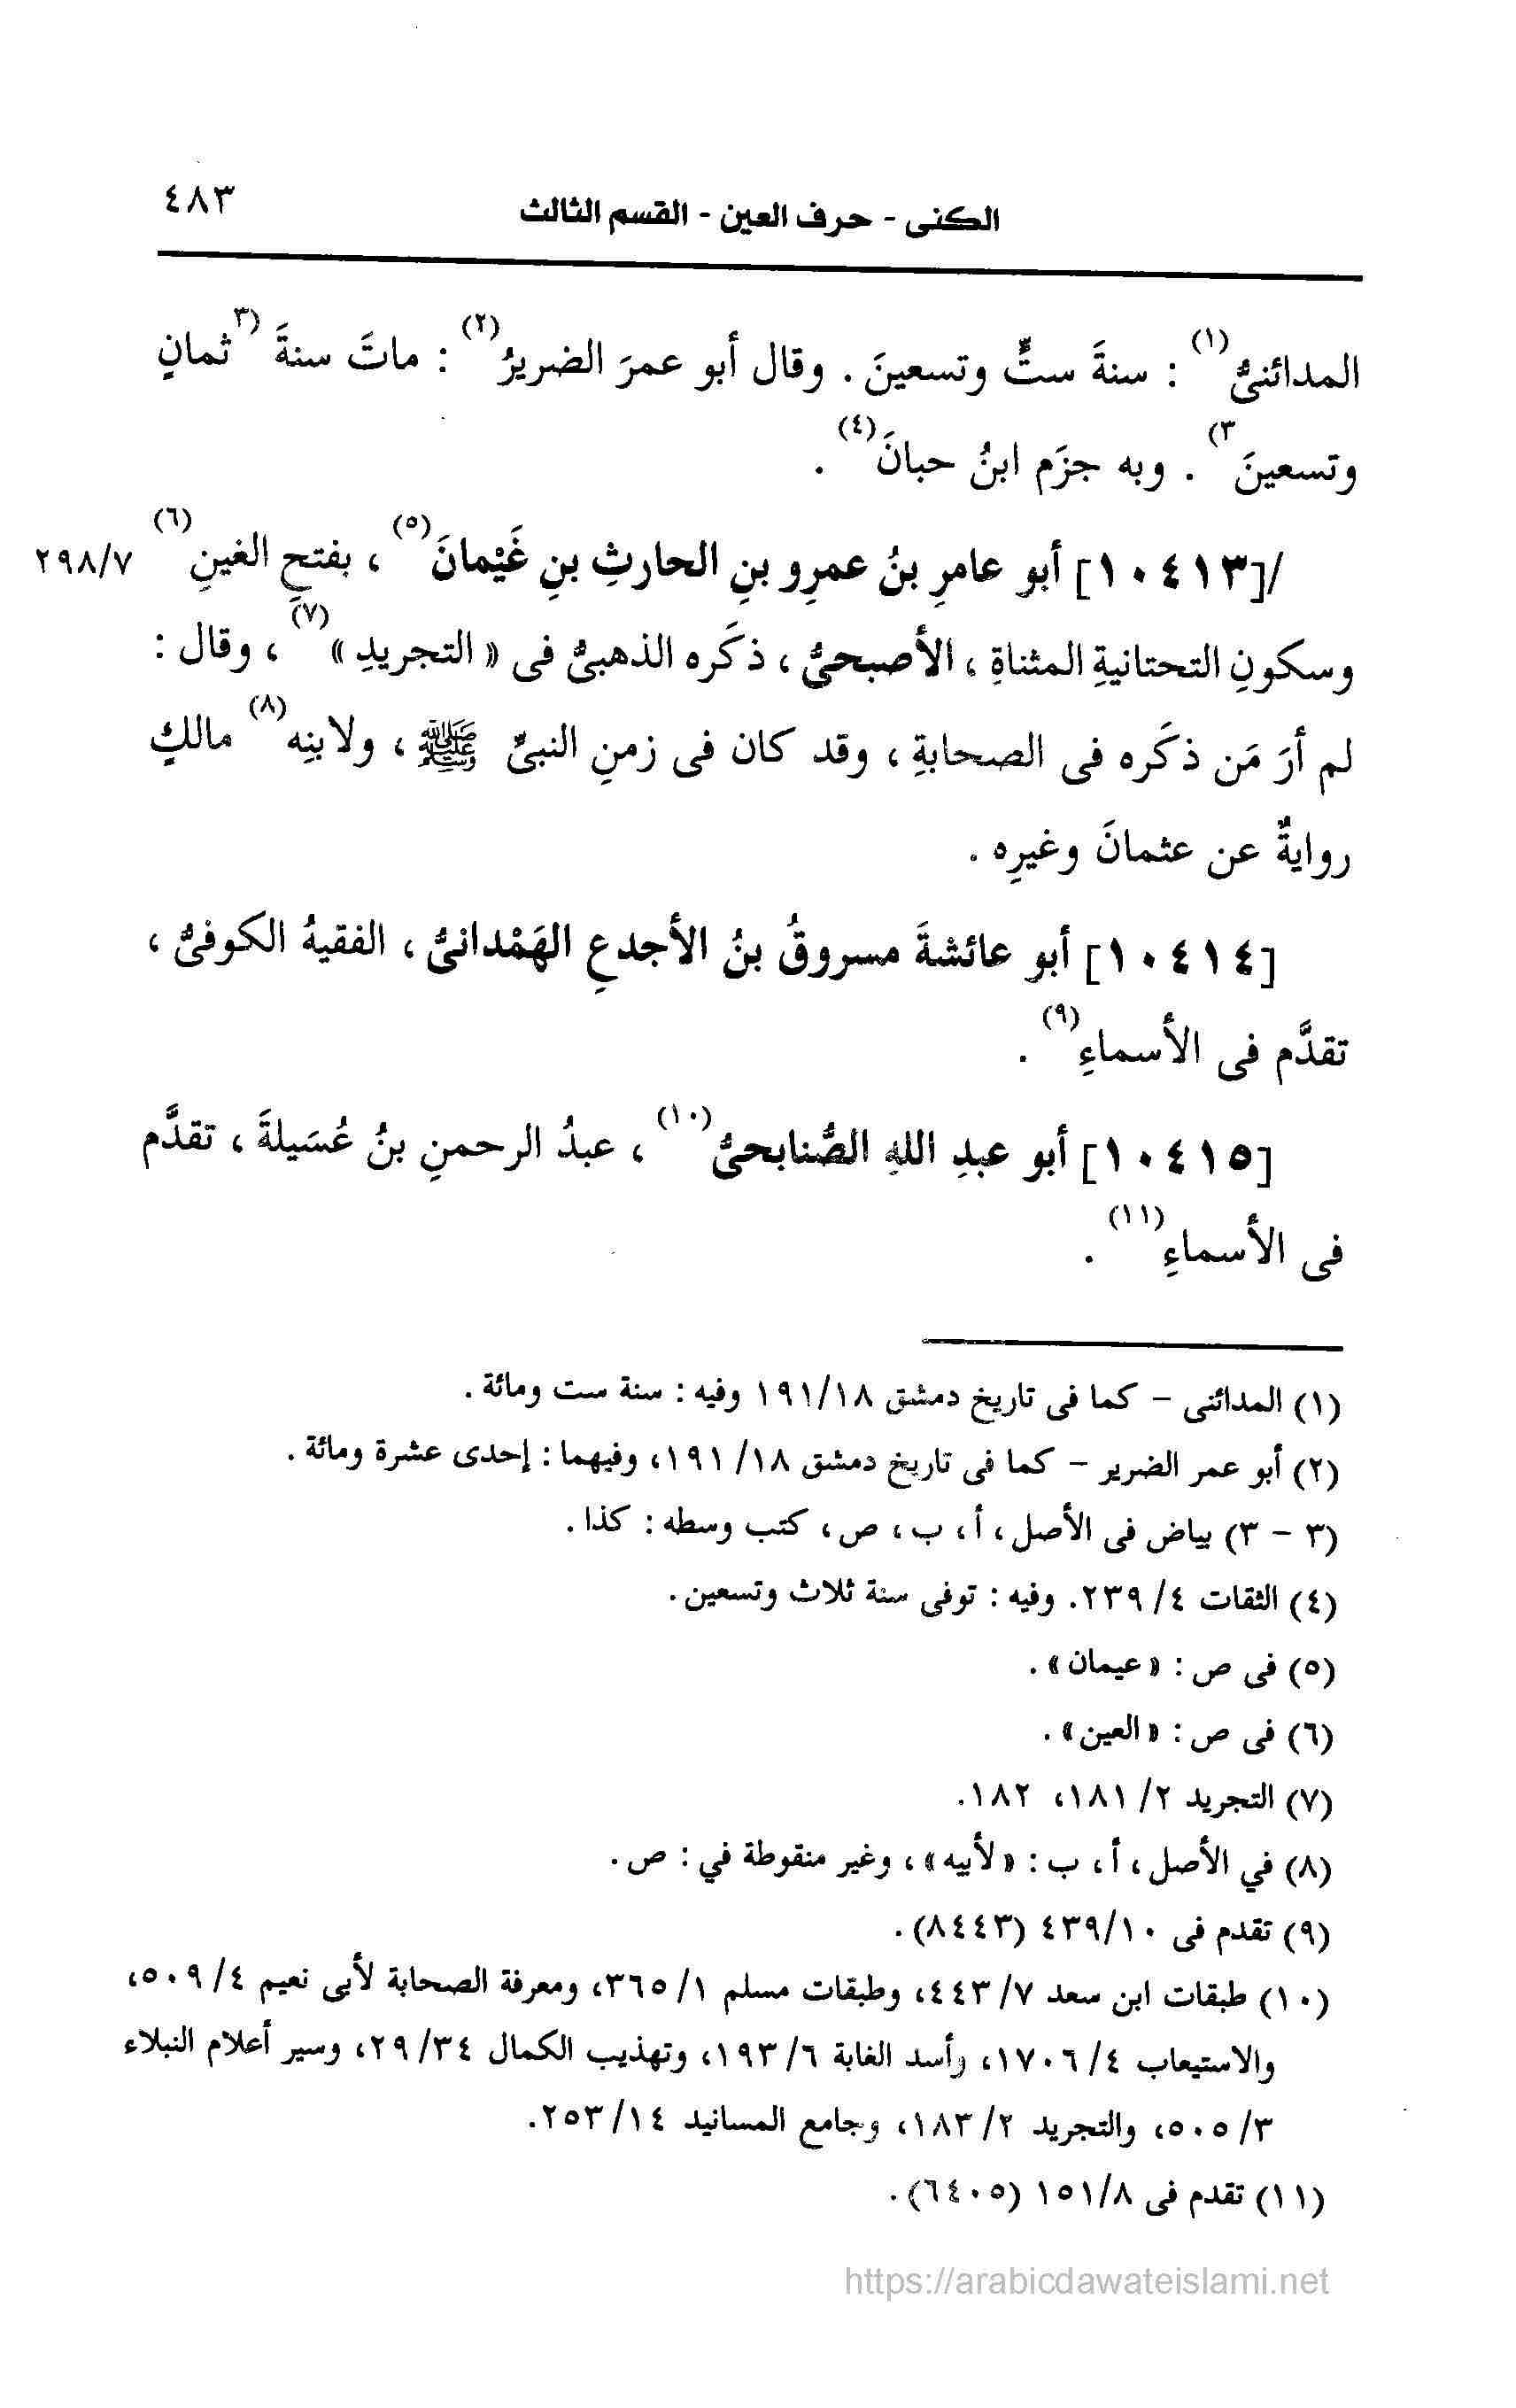 ٤٨٣
الكنى - حرف العين - القسم الثالث
المدائنىُّ(١) : سنةَ ستٍّ وتسعينَ . وقال أبو عمرَ الضريرُ(٢) : ماتَ سنةَ (٣ثمانٍ
وتسعينَ٣) . وبه جزَم ابنُ حبانَ(٤) .
/[١٠٤١٣] أبو عامرِ بنُ عمرِو بنِ الحارثِ بنِ غَيْمانَ(٥) ، بفتحِ الغينِ(٦) ٢٩٨/٧
وسكونِ التحتانيةِ المثناةِ ، الأصبحىُّ ، ذكَره الذهبىُّ فى « التجريدِ »(٧) ، وقال :
لم أرَ مَن ذكَره فى الصحابةِ ، وقد كان فى زمنِ النبىِّ ﷺ ، ولابنِه(٨) مالكٍ
روايةٌ عن عثمانَ وغيرِه .
[١٠٤١٤] أبو عائشةَ مسروقُ بنُ الأجدعِ الهَمْدانىُّ ، الفقيهُ الكوفىُّ ،
تقدَّم فى الأسماءِ(٩) .
[١٠٤١٥] أبو عبدِ اللهِ الصُّنابحىُّ(١٠) ، عبدُ الرحمنِ بنُ عُسَيلةَ ، تقدَّم
فى الأسماءِ(١١) .
(١) المدائنى - كما فى تاريخ دمشق ١٩١/١٨ وفيه : سنة ست ومائة .
(٢) أبو عمر الضرير - كما فى تاريخ دمشق ١٨/ ١٩١، وفيهما : إحدى عشرة ومائة .
(٣ - ٣) بياض فى الأصل ، أ، ب ، ص ، كتب وسطه : كذا .
(٤) الثقات ٤/ ٢٣٩. وفيه : توفى سنة ثلاث وتسعين .
(٥) فى ص : « عيمان » .
(٦) فى ص : « العين » .
(٧) التجريد ٢/ ١٨١، ١٨٢.
(٨) في الأصل ، أ، ب : « لأبيه » ، وغير منقوطة في : ص .
(٩) تقدم فى ٤٣٩/١٠ (٨٤٤٣) .
(١٠) طبقات ابن سعد ٧/ ٤٤٣، وطبقات مسلم ١/ ٣٦٥، ومعرفة الصحابة لأبى نعيم ٤/ ٥٠٩،
والاستيعاب ٤/ ١٧٠٦، وأسد الغابة ٦/ ١٩٣، وتهذيب الكمال ٣٤/ ٢٩، وسير أعلام النبلاء
٣/ ٥٠٥، والتجريد ٢/ ١٨٣، وجامع المسانيد ١٤/ ٢٥٣.
(١١) تقدم فى ١٥١/٨ (٦٤٠٥) .
https://arabicdawateislami.net